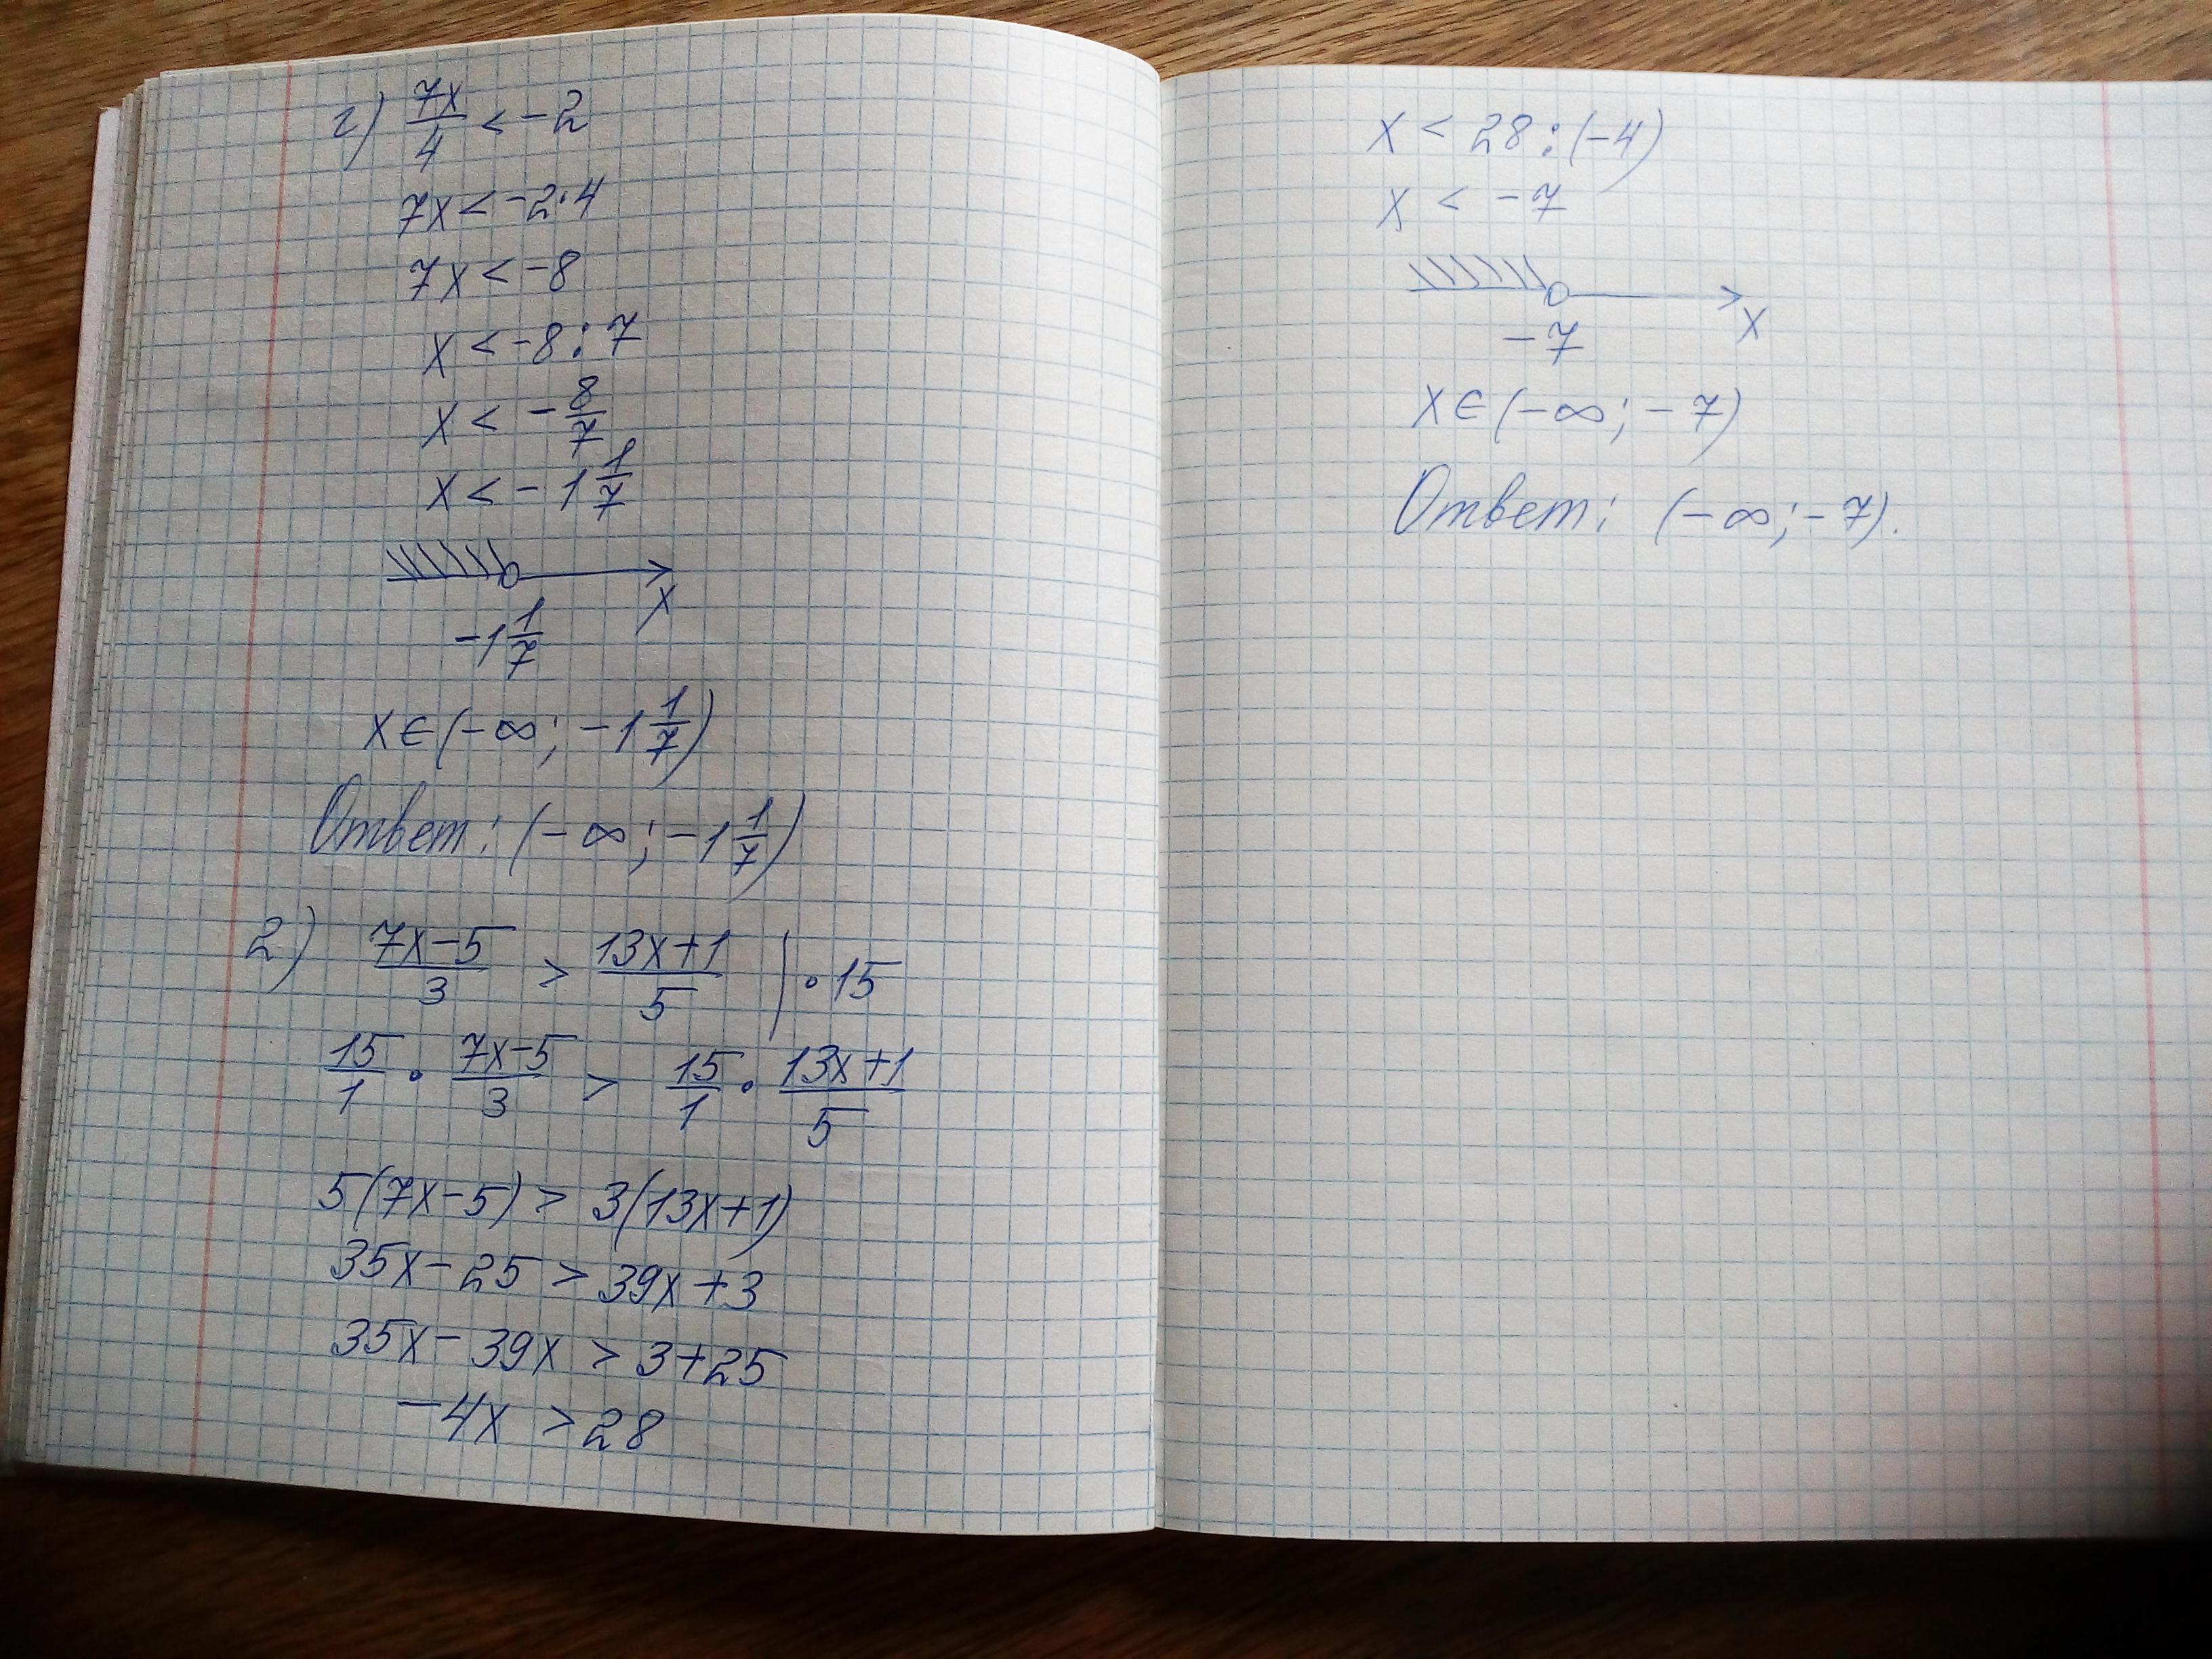 г) 7x/4 < -2
7x < -2·4
7x < -8
x < -8 : 7
x < - 8/7
x < - 1 1/7
x
-1 1/7
x ∈ (-∞; -1 1/7)
Ответ: (-∞; -1 1/7)
2) (7x-5)/3 > (13x+1)/5 | · 15
15/1 · (7x-5)/3 > 15/1 · (13x+1)/5
5(7x-5) > 3(13x+1)
35x - 25 > 39x + 3
35x - 39x > 3+25
-4x > 28
x < 28 : (-4)
x < -7
-7 x
x ∈ (-∞; -7)
Ответ: (-∞; -7).